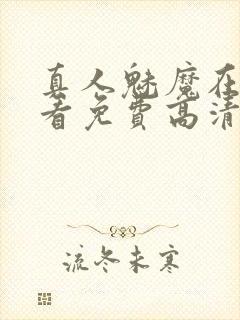 真人魅魔在
看免费高清
流冬未寒